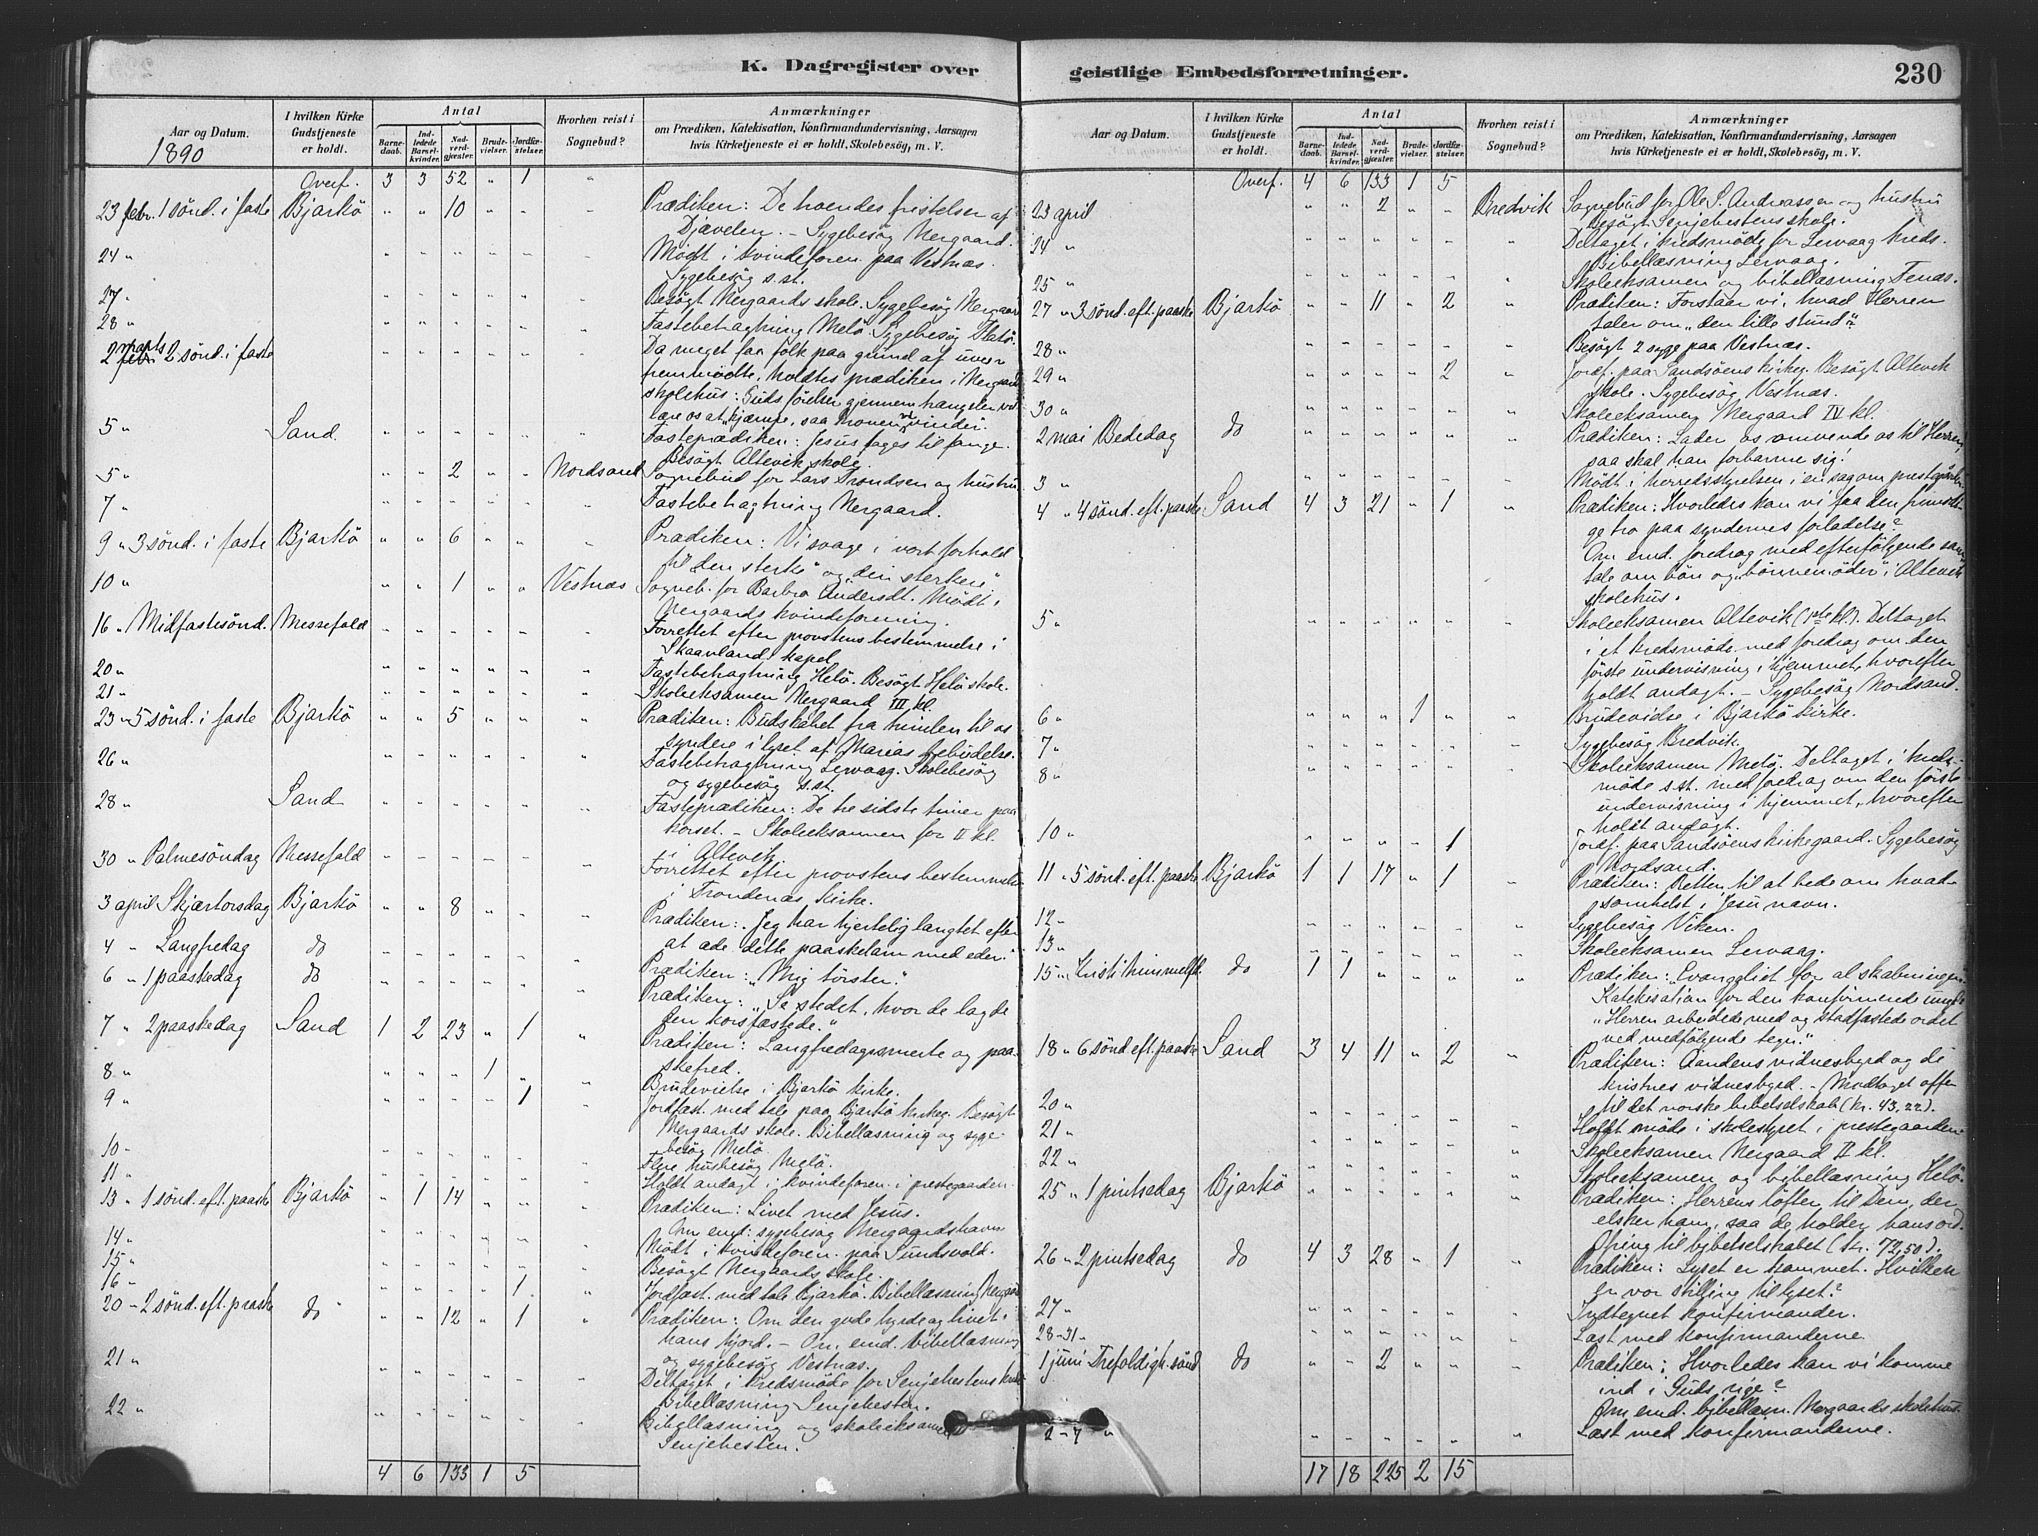 K. Dagregister over
Aar og Datum.
1890
I hvilken Kirke Gudstjeneste er holdt.
Antal
Barnedaab.
Indledede Barselkvinder.
Nadverdgjæster.
Brudevielser.
Jordfæstelser.
Hvorhen reist i Sognebud?
Anmærkninger
om Prædiken, Katekisation, Konfirmandundervisning, Aarsagen
hvis Kirketjeneste ei er holdt, Skolebesög, m. V.
Overf. 3 3 52 " 1 "
23 febr. 1 sönd. i faste Bjarkö " " 10 " " " Prædiken: De troendes fristelser af
Djævelen. – Sygebesög Nergaard.
24 " Mödt i kvindeforen. paa Vestnæs.
Sygebesög s.st.
27 " Besögt Nergaards skole. Sygebesög Nergaard
28 " Fastebetragtning Melö. Sygebesög
2 marts 2 sönd. i faste Da meget faa folk paa grund af uveir
fremmödte, holdtes prædiken i Nergaards
skolehus: Guds förelser gjennem trængsler vil
lære os at kjæmpe, saa troen vinder.
5 " Sand. Fasteprædiken: Jesus tages til fange.
Besögt Altevik skole.
5 " " " 2 " " Nordsand Sognebud for Lars Trondsen og hustru
7 " Fastebetragtning Nergaard.
9 " 3 sönd. i faste Bjarkö " " 6 " " " Prædiken: Vi svage i vort forhold
til "den sterke" og "den sterkere"
10 " " " 1 " " Vestnæs Sogneb. for Barbra Andersdt. Mödt i
Nergaards kvindeforening.
16 " Midfastesönd. Messefald Forrettet efter provstens bestemmelse i
Skaanland kapel
20 " Fastebetragtning Helö. Besögt Helö skole.
21 " Skoleeksamen Nergaard III kl.
23 " 5 sönd. i faste Bjarkö " " 5 " " " Prædiken: Budskabet fra himlen til os
syndere i lyset af Marias bebudelse.
26 " Fastebetragtning Lervaag. Skolebesög
og sygebesög s.st.
28 " Sand Fasteprædiken: De tre sidste timer paa
korset. – Skoleeksamen for II kl.
i Altevik.
30 " Palmesöndag Messefald Forrettet efter provstens bestemmelse
i Trondenæs kirke.
3 april Skjærtorsdag Bjarkö " " 8 " " " Prædiken: Jeg har hjertelig længtet efter
at æde dette paaskelam med eder."
4 " Langfredag do Prædiken: "Mig törster."
6 " 1 paaskedag do Prædiken: "Se stedet, hvor de lagde
den korsfæstede."
7 " 2 paaskedag Sand 1 2 23 " 1 " Prædiken: Langfredagssmerte og paaskefred.
8 " " " " 1 " " Brudevielse i Bjarkö kirke.
9 " " " " " 1 " Jordfæst. med tale paa Bjarkö kirkeg. Besögt
Nergaards skole. Bibellæsning og sygebesög Melö
10 " Flere husbesög Melö.
11 " Holdt andagt i kvindeforen. i prestegaarden.
13 " 1 sönd. eft. paaske Bjarkö " 1 14 " " " Prædiken: Livet med Jesus.
Om emd: sygebesög Nergaardshavn
14 " Mödt i kvindeforen. paa Sundsvold.
15 " Besögt Nergaards skole.
16 " " " " " 1 " Jordfæst. med tale Bjarkö. Bibellæsning Nergaard
20 " 2 sönd. eft. paaske do " " 12 " 1 " Prædiken: Om den gode hyrde og livet i
hans hjord. – Om emd. bibellæsning
og sygebesög Vestnæs.
21 " Deltaget i kredsmöde for Senjehestens kreds
Bibellæsning Senjehesten.
22 " Bibellæsning og skoleeksamen
Senjehesten.
4 6 133 1 5
geistlige Embedsforretninger.
230
Aar og Datum.
I hvilken Kirke Gudstjeneste er holdt.
Antal
Barnedaab.
Indledede Barselkvinder.
Nadverdgjæster.
Brudevielser.
Jordfæstelser.
Hvorhen reist i Sognebud?
Anmærkninger
om Prædiken, Katekisation, Konfirmandundervisning, Aarsagen
hvis Kirketjeneste ei er holdt, Skolebesög, m. V.
Overf. 4 6 133 1 5
23 april " " 2 " " Bredvik Sognebud for Ole S. Andreassen og hustru
Besögt Senjehestens skole.
24 " Deltaget i kredsmöde for Lervaag kreds.
Bibellæsning Lervaag.
25 " Skoleeksamen og bibellæsning Fenæs.
27 " 3 sönd. eft. paaske Bjarkö " " 11 " 2 " Prædiken: Forstaar vi, hvad Herren
taler om "den lille stund"?
28 " Besögt 2 syge paa Vestnæs.
29 " " " " " 2 " Jordf. paa Sandsöens kirkeg. Besögt Altevik
skole. Sygebesög Vestnæs.
30 " Skoleeksamen Nergaard IV kl.
2 mai Bededag do Prædiken: Lader os omvende os til Herren,
saa skal han forbarme sig!
3 " Mödt i herredsstyrelsen i en sag om prestegaarden.
4 " 4 sönd. eft. paaske Sand 4 3 21 " 1 " Prædiken: Hvorledes kan vi faa den frimodige
tro paa syndernes forladelse?
Om emd. foredrag med efterfölgende samtale
om bön og "bönnemöder" i Altevik
skolehus.
5 " Skoleeksamen Altevik (1ste kl.). Deltaget
i et kredsmöde med foredrag om den
förste undervisning i hjemmet, hvorefter
holdt andagt. – Sygebesög Nordsand.
6 " " " " 1 " " Brudevidse i Bjarkö kirke.
7 " Sygebesög Bredvik.
8 " Skoleeksamen Melö. Deltaget i kredsmöde
s.st. med foredrag om den förste
undervisning i hjemmet, hvorefter
holdt andagt.
10 " " " " " 1 Jordf. paa Sandsöens kirkegaard. Sygebesög
Nordsand.
11 " 5 sönd. eft. paaske Bjarkö 1 1 17 " 1 " Prædiken: Retten til at bede om hvadsomhelst
i Jesu navn.
12 " Sygebesög Viken.
13 " Skoleeksamen Lervaag.
15 " Kristi himmelf. do 1 1 " " " " Prædiken: "Evangeliet for al skabningen."
Katekisation for den konfirmerede ungd.
"Herren arbeidede med og stadfæstede ordet
ved medfölgende tegn."
18 " 6 sönd eft. paaske Sand 3 4 11 " 2 " Prædiken: Aandens vidnesbyrd og de
kristnes vidnesbyrd. – Modtaget offer
til det norske bibelselskab (kr. 43,22).
20 " Holdt möde i skolestyret i prestegaarden
21 " Skoleeksamen Nergaard II kl.
22 " Skoleeksamen og bibellæsning Helö.
25 " 1 pintsedag Bjarkö Prædiken: Herrens löfter til dem, der
elsker ham, saa de holder hans ord.
Ofring til bibelselskabet (kr. 72,50).
26 " 2 pintsedag do 4 3 28 " 1 " Prædiken: Lyset er kommet. Hvilken
er vor stilling til lyset?
27 " Indtegnet konfirmander.
28-31 " Læst med konfirmanderne
1 juni Trefoldigh. sönd do " " 2 " " " Prædiken: Hvorledes kan vi komme
ind i Guds rige?
Om emd. bibellæsn. Nergaards skolehus.
2-7 " Læst med konfirmanderne.
17 18 225 2 15